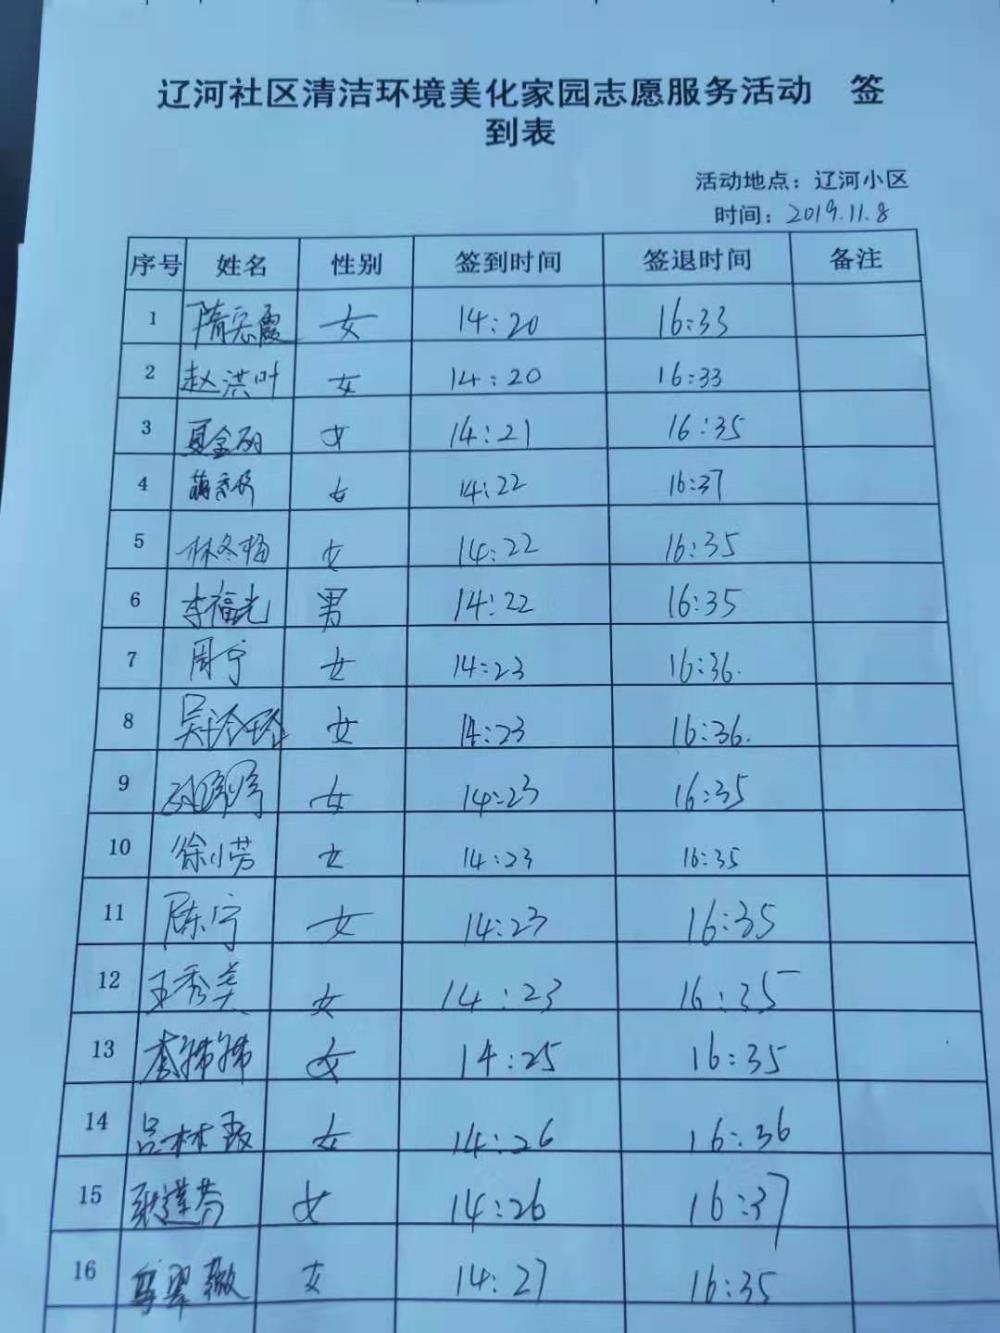 辽河社区清洁环境美化家园志愿服务活动 签
到表
活动地点：辽河小区
时间：2019.11.8
序号 姓名 性别 签到时间 签退时间 备注
1 隋宏霞 女 14:20 16:33
2 赵洪叶 女 14:20 16:33
3 夏金 女 14:21 16:35
4 女 14:22 16:37
5 林冬梅 女 14:22 16:35
6 李福光 男 14:22 16:35
7 周宁 女 14:23 16:36.
8 吴玲玲 女 14:23 16:36.
9 女 14:23 16:35
10 徐小芳 女 14:23 16:35
11 陈宁 女 14:23 16:35
12 王秀美 女 14:23 16:35
13 李 女 14:25 16:35
14 吕林 女 14:26 16:36
15 耿莲芬 女 14:26 16:37
16 翠薇 女 14:27 16:35